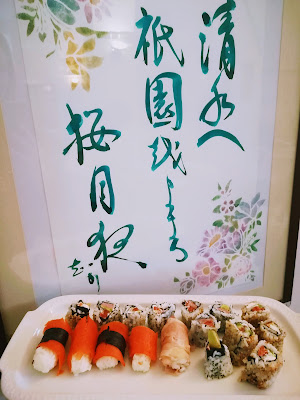 清水へ
祇園越よきる
桜月夜